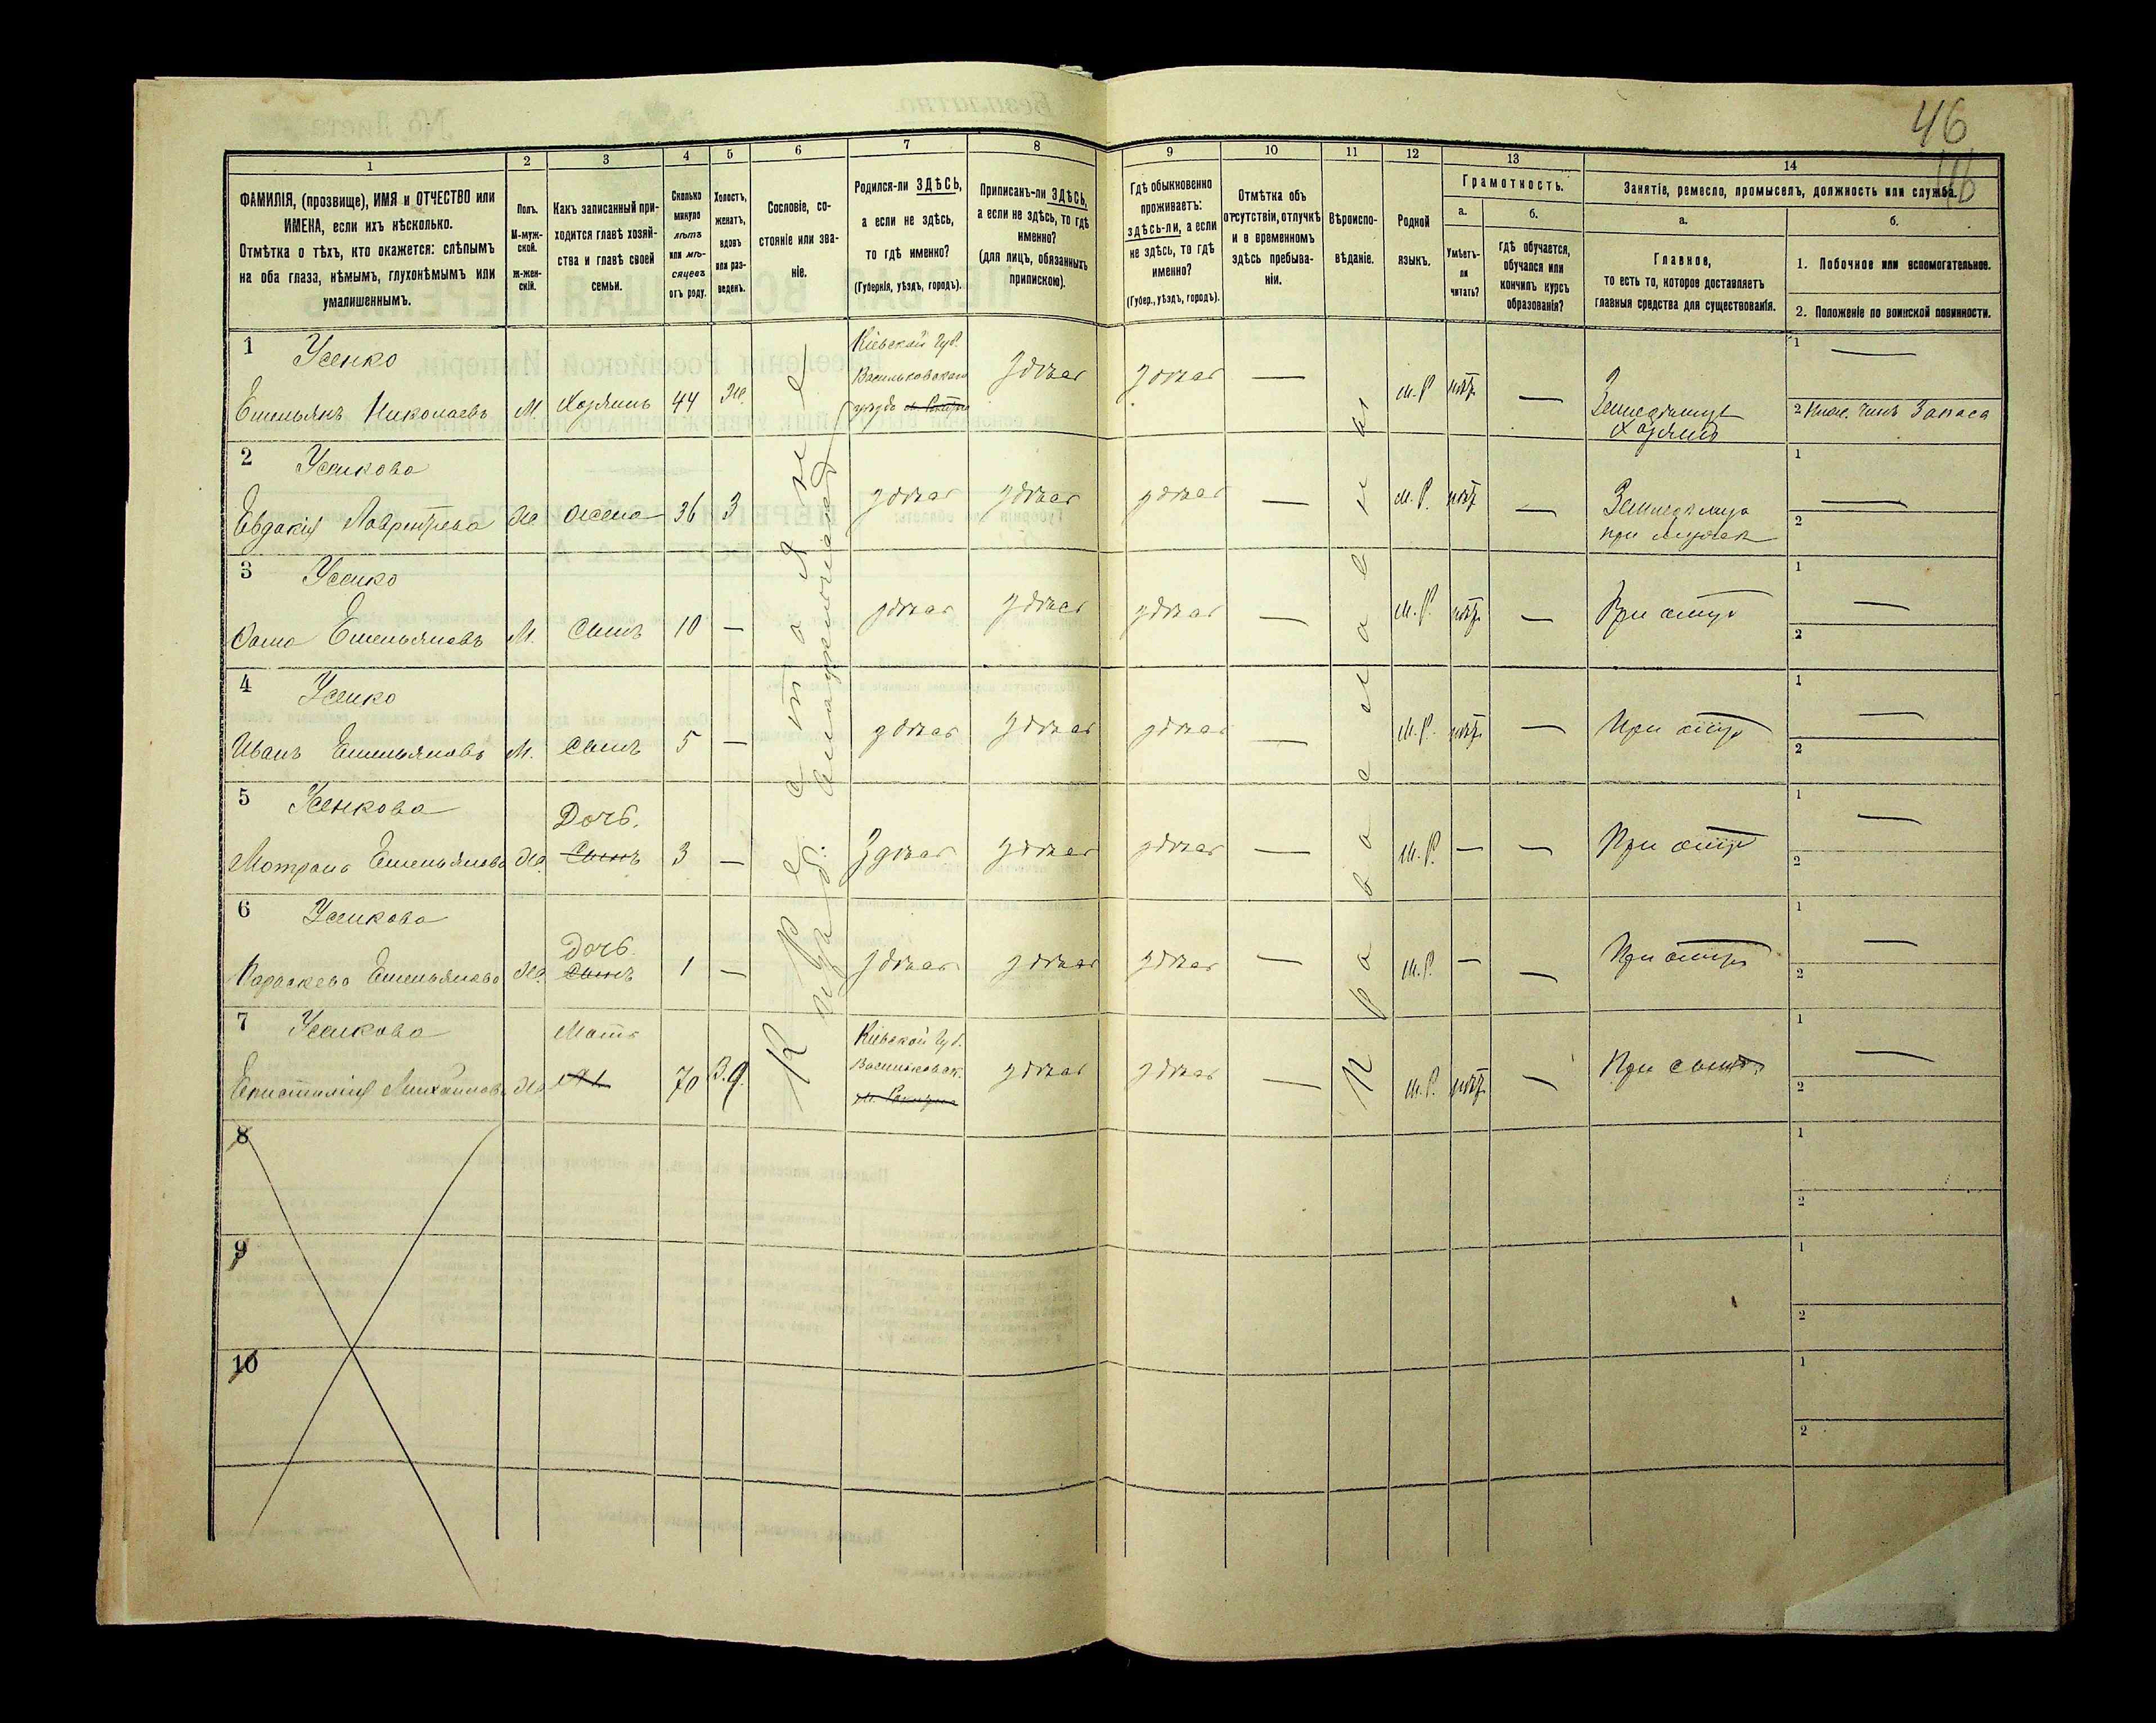 46
46
1 2 3 4 5 6 7 8 9 10 11 12 13 14
ФАМИЛІЯ, (прозвище), ИМЯ и ОТЧЕСТВО или ИМЕНА, если ихъ нѣсколько.
Отмѣтка о тѣхъ, кто окажется: слѣпымъ на оба глаза, нѣмымъ, глухонѣмымъ или умалишеннымъ.
Полъ.
М-мужской.
Ж-женскій.
Какъ записанный приходится главѣ хозяйства и главѣ своей семьи.
Сколько минуло лѣтъ или мѣсяцевъ отъ роду.
Холостъ, женатъ, вдовъ или разведенъ.
Сословіе, состояніе или званіе.
Родился-ли ЗДѢСЬ, а если не здѣсь, то гдѣ именно?
(Губернія, уѣздъ, городъ).
Приписанъ-ли ЗДѢСЬ, а если не здѣсь, то гдѣ именно?
(для лицъ, обязанныхъ припискою).
Гдѣ обыкновенно проживаетъ: здѣсь-ли, а если не здѣсь, то гдѣ именно?
(Губер., уѣздъ, городъ).
Отмѣтка объ отсутствіи, отлучкѣ и о временномъ здѣсь пребываніи.
Вѣроисповѣданіе.
Родной языкъ.
Грамотность.
а.
Умѣетъ-ли читать?
б.
гдѣ обучается, обучался или кончилъ курсъ образованія?
Занятіе, ремесло, промыселъ, должность или служба.
а.
Главное,
то есть то, которое доставляетъ главныя средства для существованія.
б.
1. Побочное или вспомогательное.
2. Положеніе по воинской повинности.
Крестьяне
Православный
1 Усенко
Емельянъ Николаевъ М. Хозяинъ 44 Же Кіевской Губ. Васильковскаго уѣзда здѣсь здѣсь — м.р. нѣтъ — Земледѣлецъ Хозяинъ 1 —
2 Нижн. Чинъ Запаса
2 Усенкова
Евдакія Же Жена 36 З здѣсь здѣсь здѣсь — м.р. нѣтъ — при мужѣ 1 —
2
3 Усенко
Емельяновъ М. Сынъ 10 — здѣсь здѣсь здѣсь — м.р. нѣтъ — При отцѣ 1 —
2
4 Усенко
Иванъ Емельяновъ М. Сынъ 5 — здѣсь здѣсь здѣсь — м.р. нѣтъ — При отцѣ 1 —
2
5 Усенкова
Емельянова Же Дочь. Сынъ 3 — Здѣсь здѣсь здѣсь — м.р. — — При отцѣ 1 —
2
6 Усенкова
Параскева Емельянова Же Дочь. Сынъ 1 — здѣсь здѣсь здѣсь — м.р. — — При отцѣ 1 —
2
7 Усенкова
Михайлова Же Мать 70 Вд. Кіевской Губ. Васильковск. здѣсь здѣсь — м.р. нѣтъ — При сынѣ 1 —
2
8
1
2
9
1
2
10
1
2